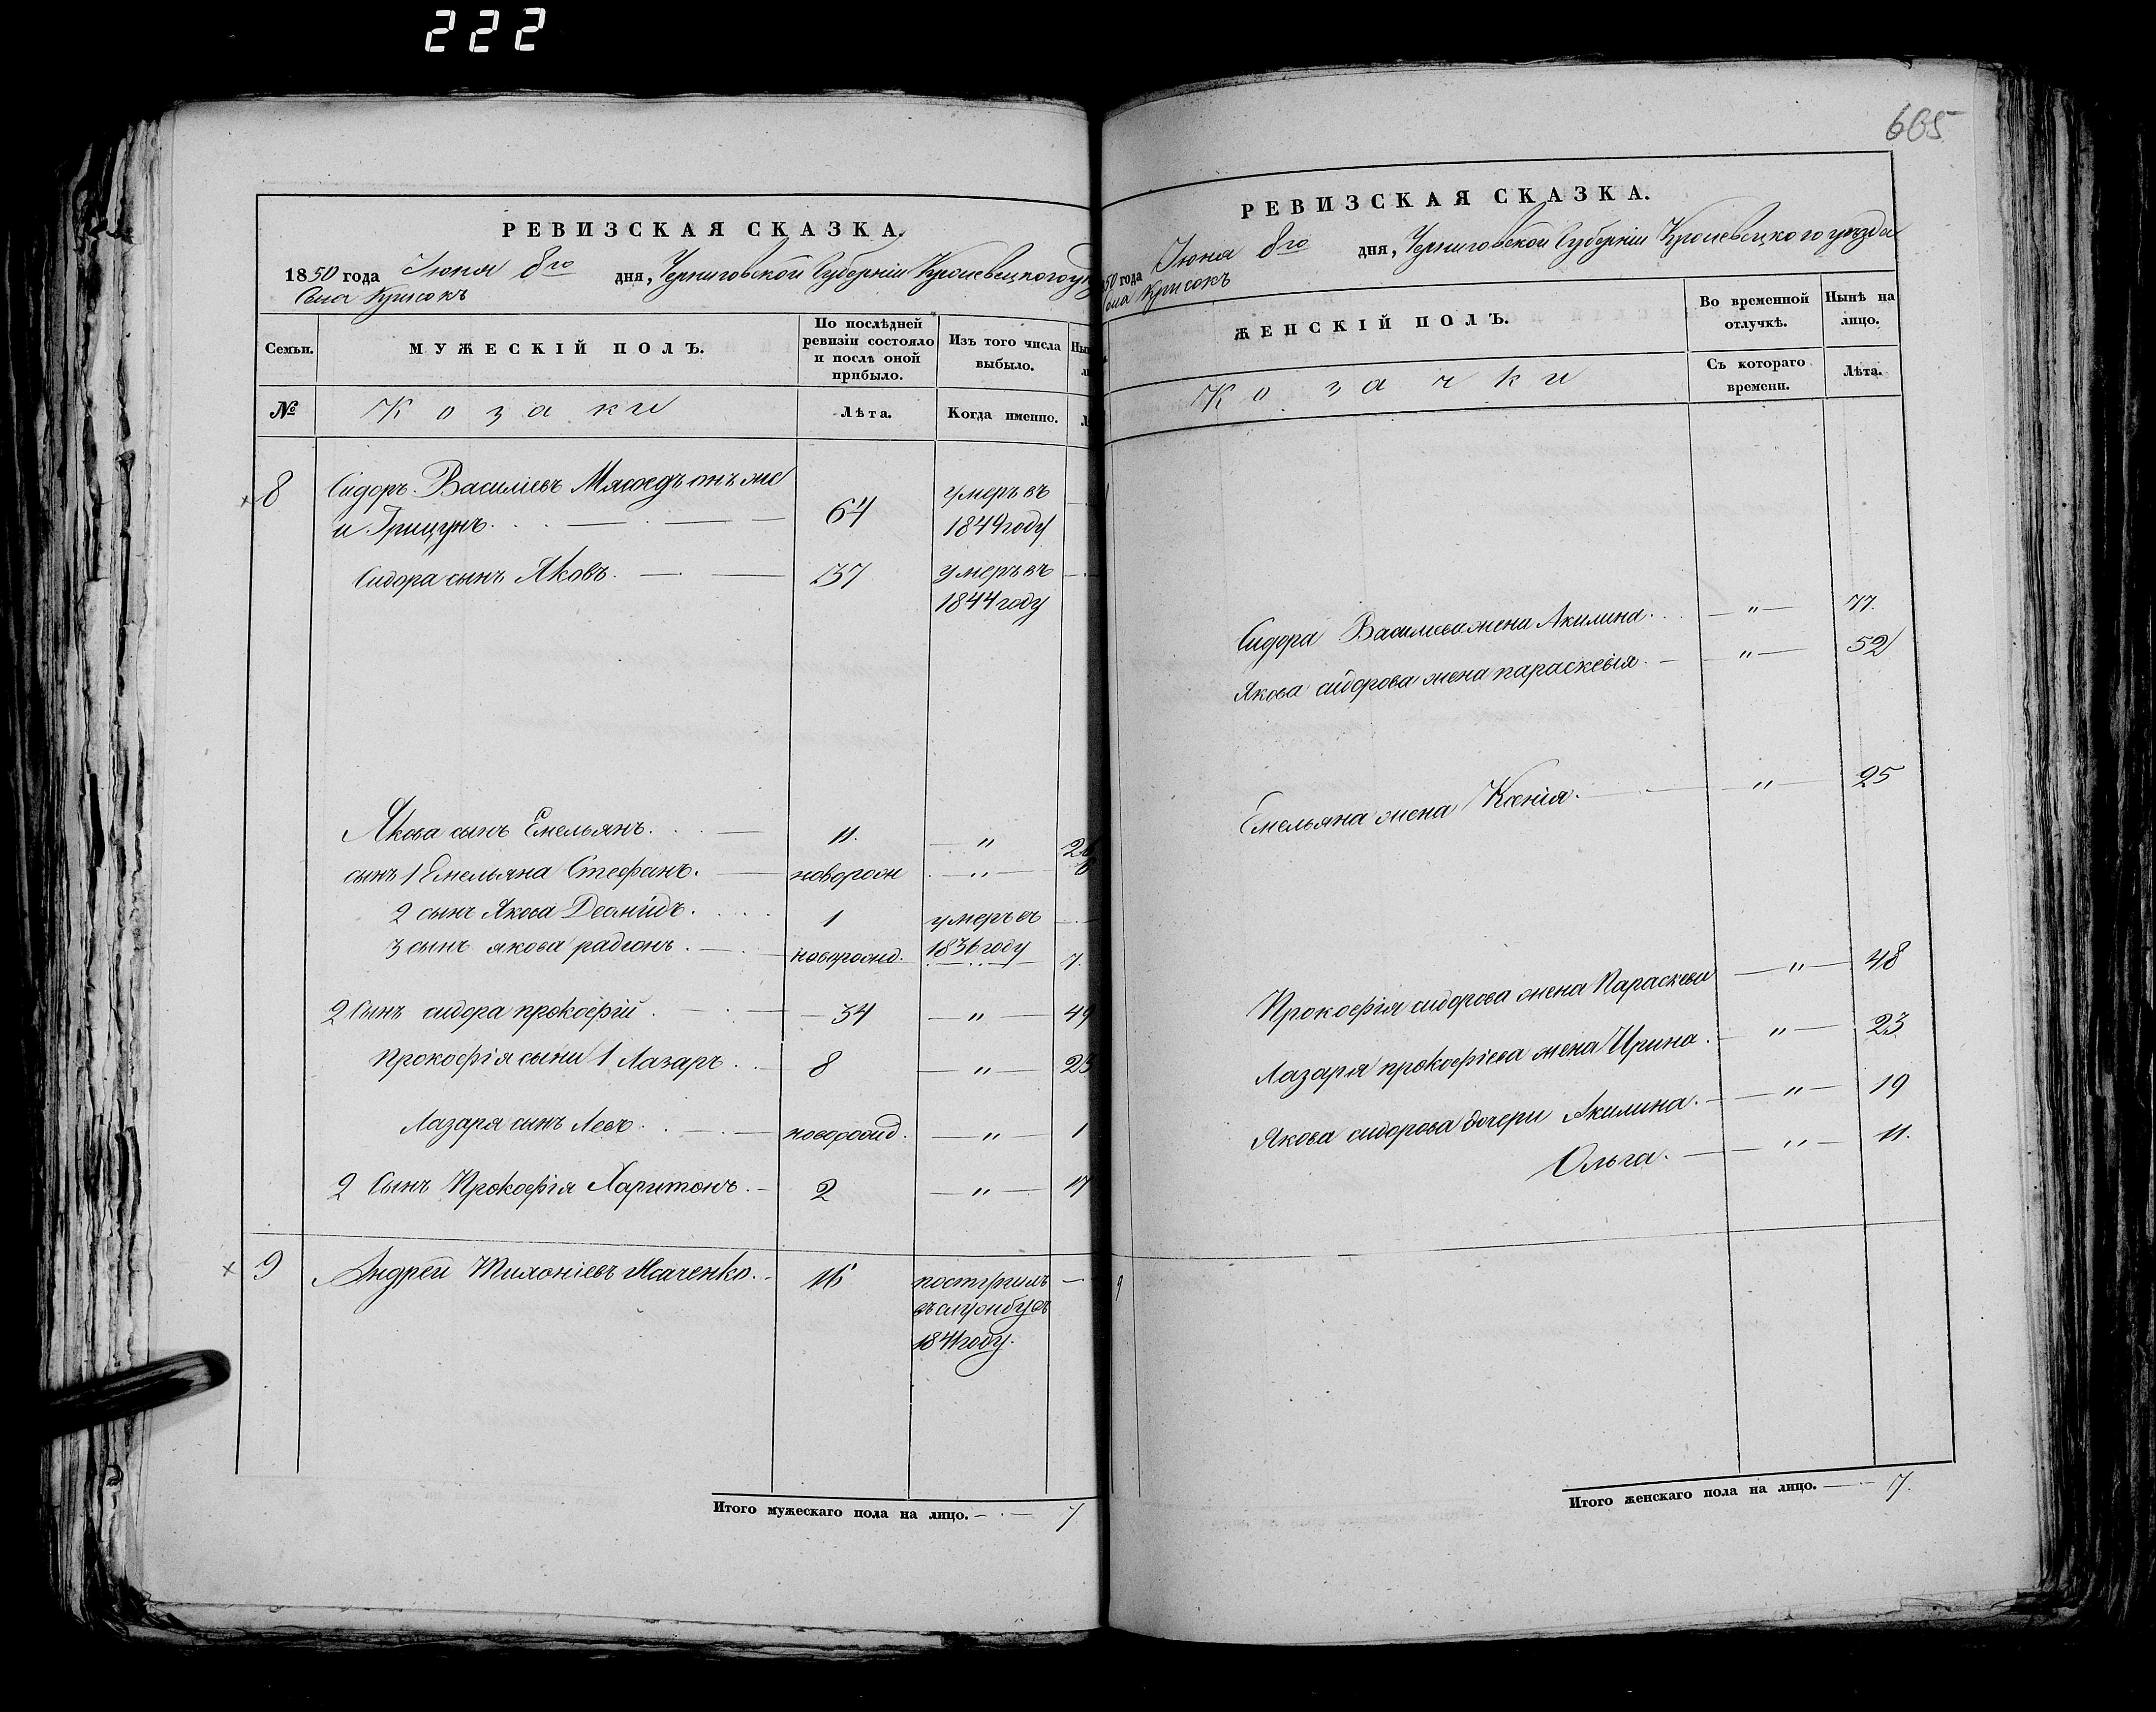 222
РЕВИЗСКАЯ СКАЗКА.
1850 года Июня 8го дня, Черниговской Губерніи Кролевецкого
Села Крисокъ
Семьи.
МУЖЕСКІЙ ПОЛЪ.
По послѣдней ревизіи состояло и послѣ оной прибыло.
Изъ того числа выбыло.
№
Козаки
Лѣта.
Когда именно.
8 Сидоръ Василіевъ Мясоедъ онъ же 64 умеръ въ
и Грицунъ. 1849 году
Сидора сынъ Яковъ. 37 умеръ въ
1844 году
Якова сынъ Емельянъ. 11. " 26
сынъ 1 Емельяна Стефанъ. новорож "
2 сынъ Якова Леонидъ. 1 умеръ въ
3 сынъ якова радіонъ. новорожд. 1836 году 7.
2 Сынъ сидора прокофій. 34 " 49
Прокофія сыны 1 Лазаръ. 8 " 23
Лазаря сынъ Левъ. новорожд. " 1
2 Сынъ Прокофія Харитонъ. 2 " 17
9 Андрей 16 поступилъ
въ службу въ
1841 году.
Итого мужескаго пола на лицо. 7
605
РЕВИЗСКАЯ СКАЗКА.
50 года Июня 8го дня, Черниговской Губерніи Кролевецкого уезда
Села Крисокъ
ЖЕНСКІЙ ПОЛЪ.
Во временной отлучкѣ.
Нынѣ на лицо.
Козачки
Съ котораго времени.
Лѣта.
Сидора Василиева жена Акилина. " 77.
Якова сидорова жена параскевія. " 52
Емельяна жена Ксенія. " 25
Прокофія сидорова жена Параскевия " 48
Лазаря прокофіева жена Ирина. " 23.
Якова сидорова дочери Акилина. " 19
Ольга. " 11.
9
Итого женскаго пола на лицо. 7.